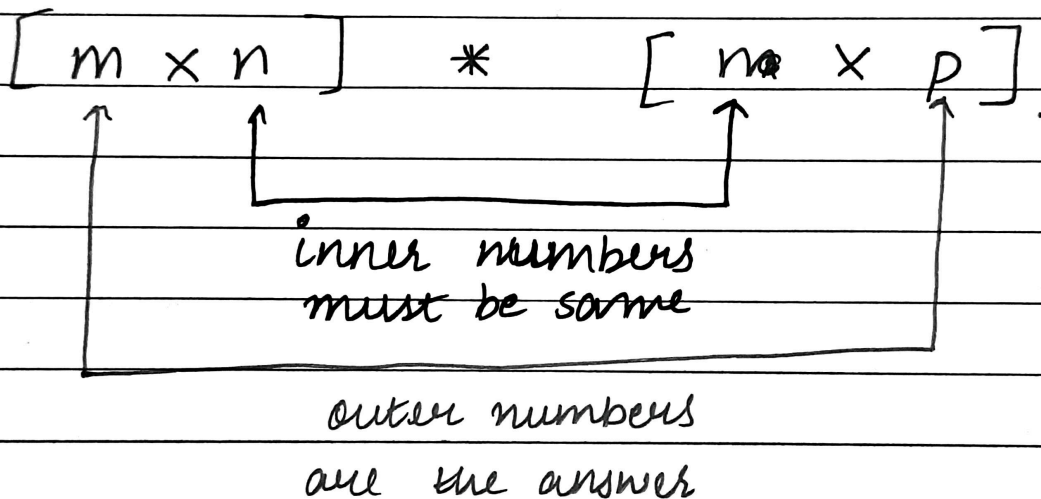 [ m × n ] * [ n × p ].
inner numbers
must be same
outer numbers
are the answer